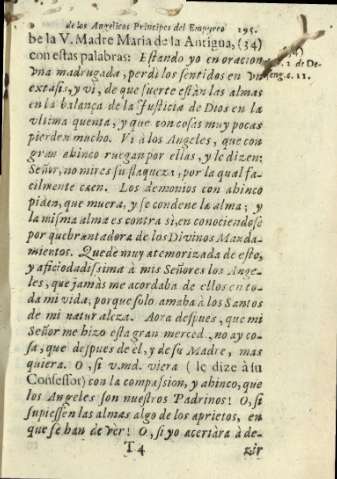 de los Angelicos Principes del Empyreo 295.
be la V. Madre Maria de la Antigua, (34)
con estas palabras: Estando yo en oracion
vna madrugada, perdì los sentidos en
extasis, y vi, de que suerte estàn las almas
en la balança de la Justicia de Dios en la
vltima quenta, y que son cosas muy pocas
pierden mucho. Vi à los Angeles, que con
gran ahinco ruegan por ellas, y le dizen:
Señor, no mires su flaqueza, por la qual fa-
cilmente caen. Los demonios con ahinco
piden, que muera, y se condene la alma; y
la misma alma es contra sì, en conociendose
por quebrantadora de los Divinos Manda-
mientos. Quedè muy atemorizada de esto,
y aficiodadissima à mis Señores los Ange-
les, que jamàs me acordaba de ellos en to-
da mi vida; porque solo amaba à los Santos
de mi naturaleza. Aora despues, que mi
Señor me hizo esta gran merced, no ay co-
sa, que despues de el, y de su Madre, mas
quiera. O, si v.md. viera (le dize à su
Confessor) con la compassion, y ahinco, que
los Angeles son nuestros Padrinos! O, si
supiessen las almas algo de los aprietos, en
que se han de vèr! O, si yo acertàra à de-
T 4 zir
(34)
l. 2 de De-
seng. c. 11.